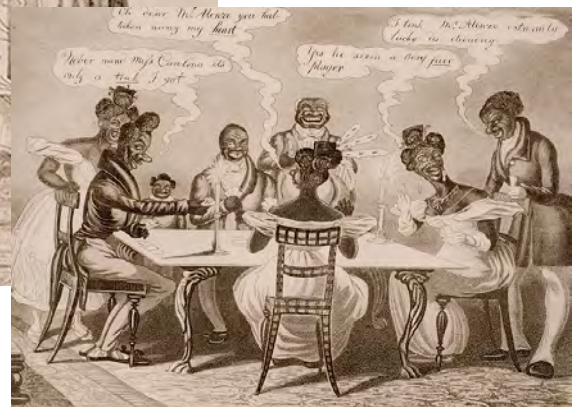 Oh dear Mr. Alonzo you had
taken away my heart
Never mind Miss Carolina its
only a I got
Yes he seem a very fair
player
I tink Mr. Alonzo extremly
lucky in drawing